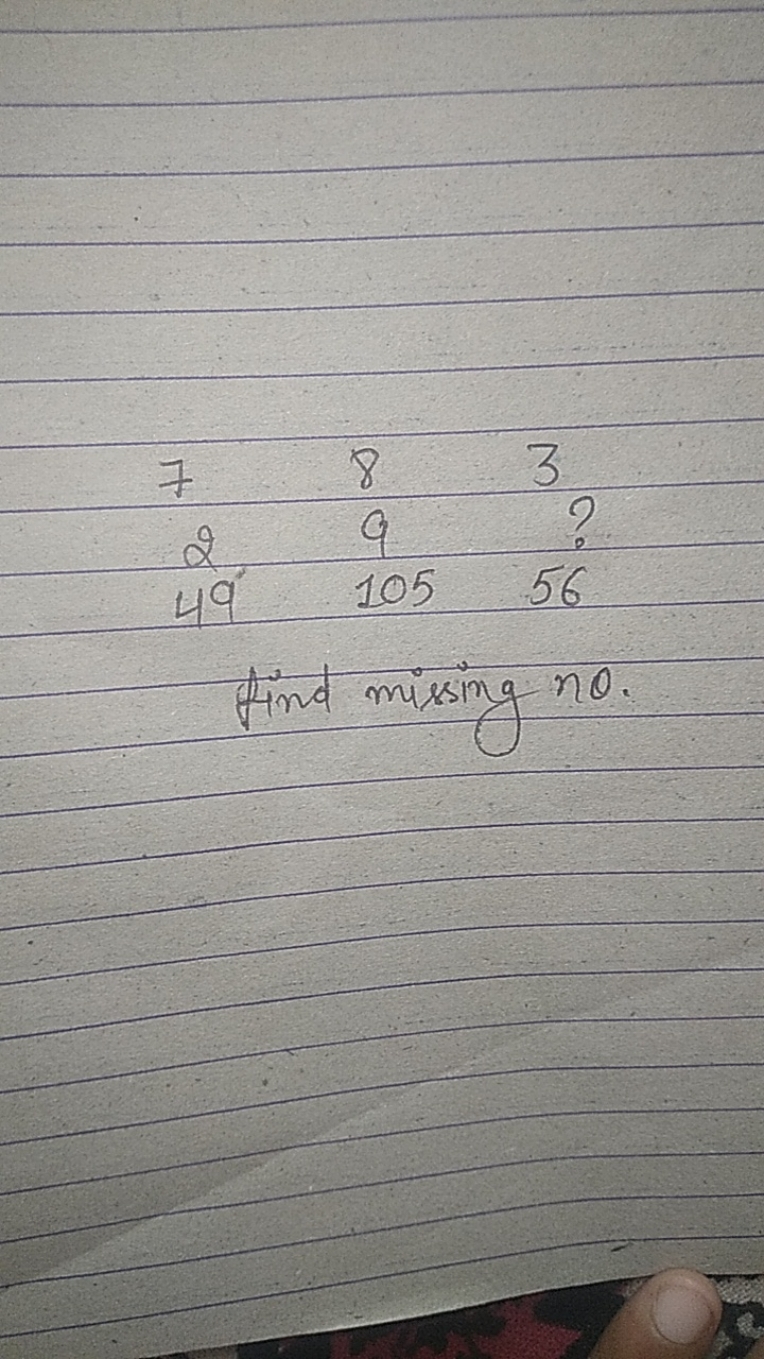 7 8 3
2 9 ?
49 105 56
find missing no.